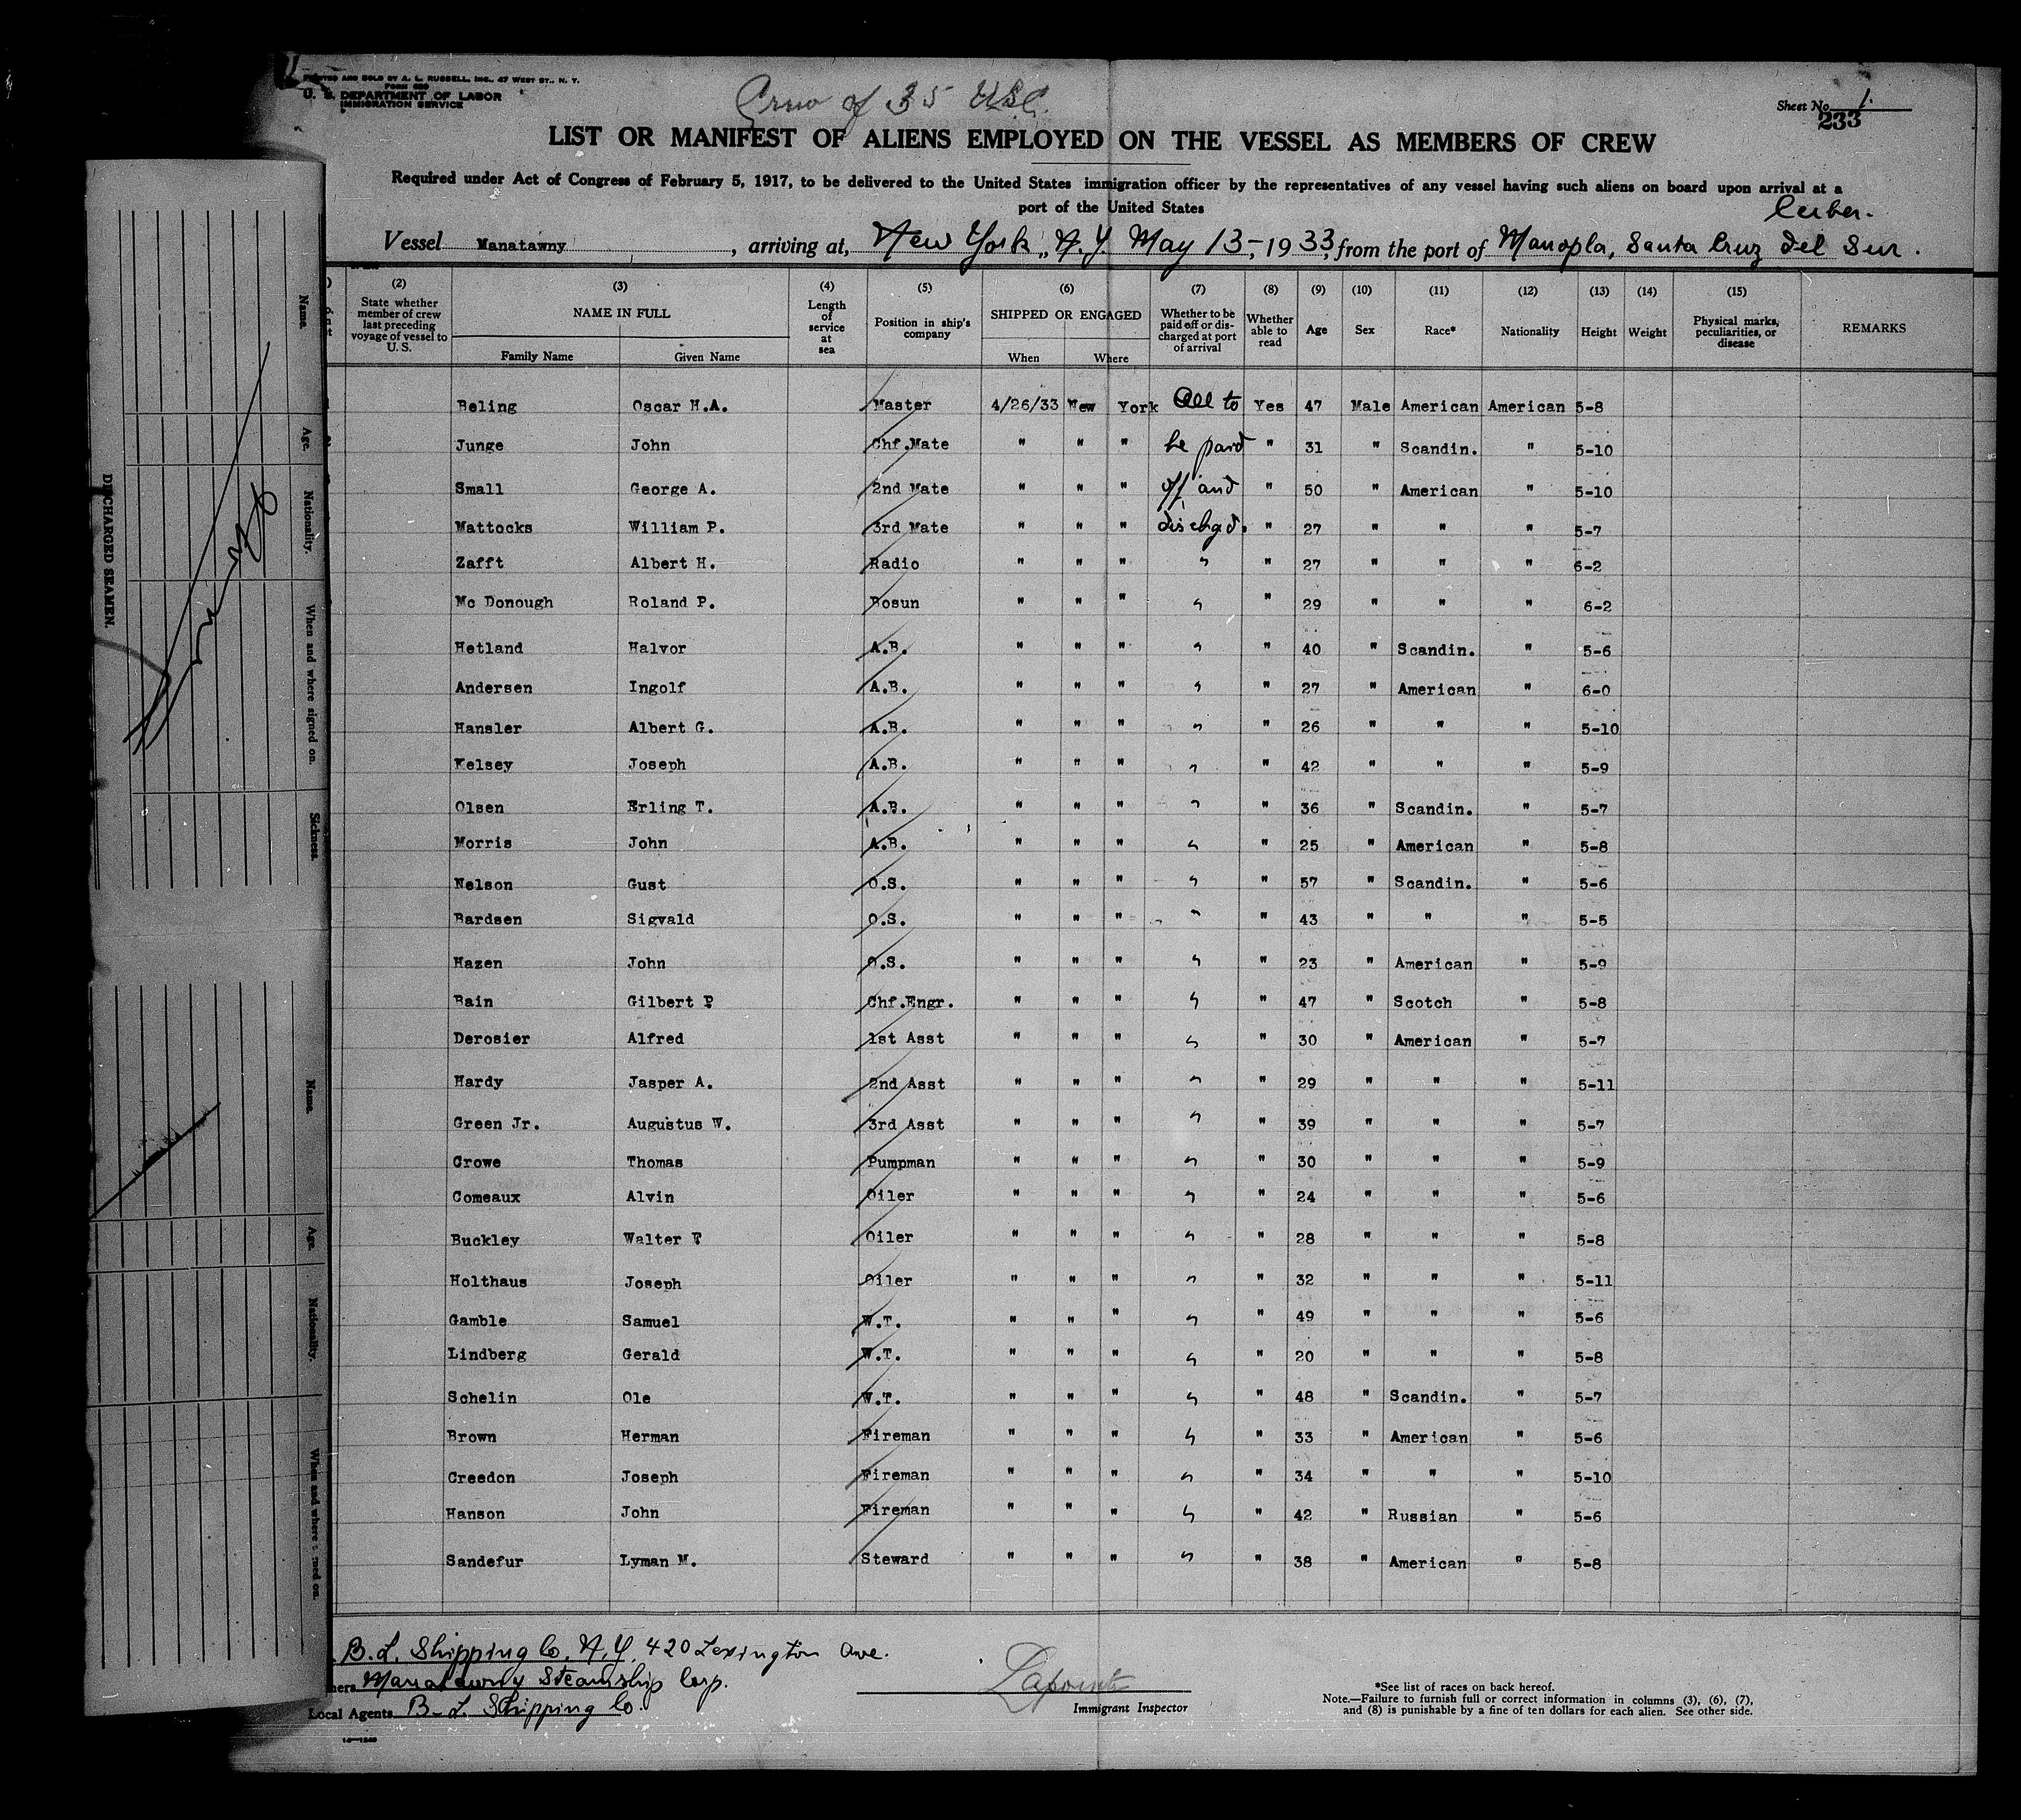 PRINTED AND SOLD BY A. L. RUSSELL, INC., 47 WEST ST., N. Y.
U. S. DEPARTMENT OF LABOR
IMMIGRATION SERVICE
Crew of 35 USC.
Sheet No. 1.
233
LIST OR MANIFEST OF ALIENS EMPLOYED ON THE VESSEL AS MEMBERS OF CREW
Required under Act of Congress of February 5, 1917, to be delivered to the United States immigration officer by the representatives of any vessel having such aliens on board upon arrival at a
port of the United States
Cuba.
Vessel Manatawny, arriving at, New York, N.Y. May 13-, 1933, from the port of Manopla, Santa Cruz del Sur.
(2) (3) (4) (5) (6) (7) (8) (9) (10) (11) (12) (13) (14) (15)
State whether member of crew last preceding voyage of vessel to U. S. NAME IN FULL Length of service at sea Position in ship's company SHIPPED OR ENGAGED Whether to be paid off or discharged at port of arrival Whether able to read Age Sex Race* Nationality Height Weight Physical marks, peculiarities, or disease REMARKS
Family Name Given Name When Where
Beling Oscar H.A. Master 4/26/33 New York All to Yes 47 Male American American 5-8
Junge John Chf.Mate " " " be paid " 31 " Scandin. " 5-10
Small George A. 2nd Mate " " " off and " 50 " American " 5-10
Mattocks William P. 3rd Mate " " " dischgd. " 27 " " " 5-7
Zafft Albert H. Radio " " " " " 27 " " " 6-2
Mc Donough Roland P. Bosun " " " " " 29 " " " 6-2
Hetland Halvor A.B. " " " " " 40 " Scandin. " 5-6
Andersen Ingolf A.B. " " " " " 27 " American " 6-0
Hansler Albert G. A.B. " " " " " 26 " " " 5-10
Kelsey Joseph A.B. " " " " " 42 " " " 5-9
Olsen Erling T. A.B. " " " " " 36 " Scandin. " 5-7
Morris John A.B. " " " " " 25 " American " 5-8
Nelson Gust O.S. " " " " " 57 " Scandin. " 5-6
Bardsen Sigvald O.S. " " " " " 43 " " " 5-5
Hazen John O.S. " " " " " 23 " American " 5-9
Bain Gilbert P Chf.Engr. " " " " " 47 " Scotch " 5-8
Derosier Alfred 1st Asst " " " " " 30 " American " 5-7
Hardy Jasper A. 2nd Asst " " " " " 29 " " " 5-11
Green Jr. Augustus W. 3rd Asst " " " " " 39 " " " 5-7
Crowe Thomas Pumpman " " " " " 30 " " " 5-9
Comeaux Alvin Oiler " " " " " 24 " " " 5-6
Buckley Walter F Oiler " " " " " 28 " " " 5-8
Holthaus Joseph Oiler " " " " " 32 " " " 5-11
Gamble Samuel W.T. " " " " " 49 " " " 5-6
Lindberg Gerald W.T. " " " " " 20 " " " 5-8
Schelin Ole W.T. " " " " " 48 " Scandin. " 5-7
Brown Herman Fireman " " " " " 33 " American " 5-6
Creedon Joseph Fireman " " " " " 34 " " " 5-10
Hanson John Fireman " " " " " 42 " Russian " 5-6
Sandefur Lyman M. Steward " " " " " 38 " American " 5-8
B.L. Shipping Co. N.Y. 420 Lexington Ave.
Manatawny Steamship Corp.
Local Agents B-L Shipping Co.
Lapointe
Immigrant Inspector
*See list of races on back hereof.
Note.—Failure to furnish full or correct information in columns (3), (6), (7),
and (8) is punishable by a fine of ten dollars for each alien. See other side.
DISCHARGED SEAMEN.
Name. Age. Nationality. When and where signed on. Sickness.
Name. Age. Nationality. When and where